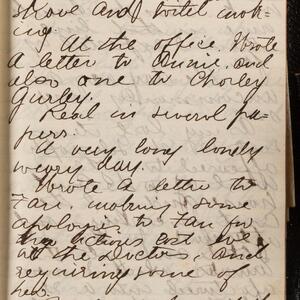 stove and
ing.
At the office. Wrote
a letter to Annie, and
also one to Chorley
Gurley.
Read in several pa-
pers.
A very long lonely
weary day.
Wrote a letter to
Fan, making some
apologies to Fan for
her actions last eve
at the Doctors, and
requiring some of
her